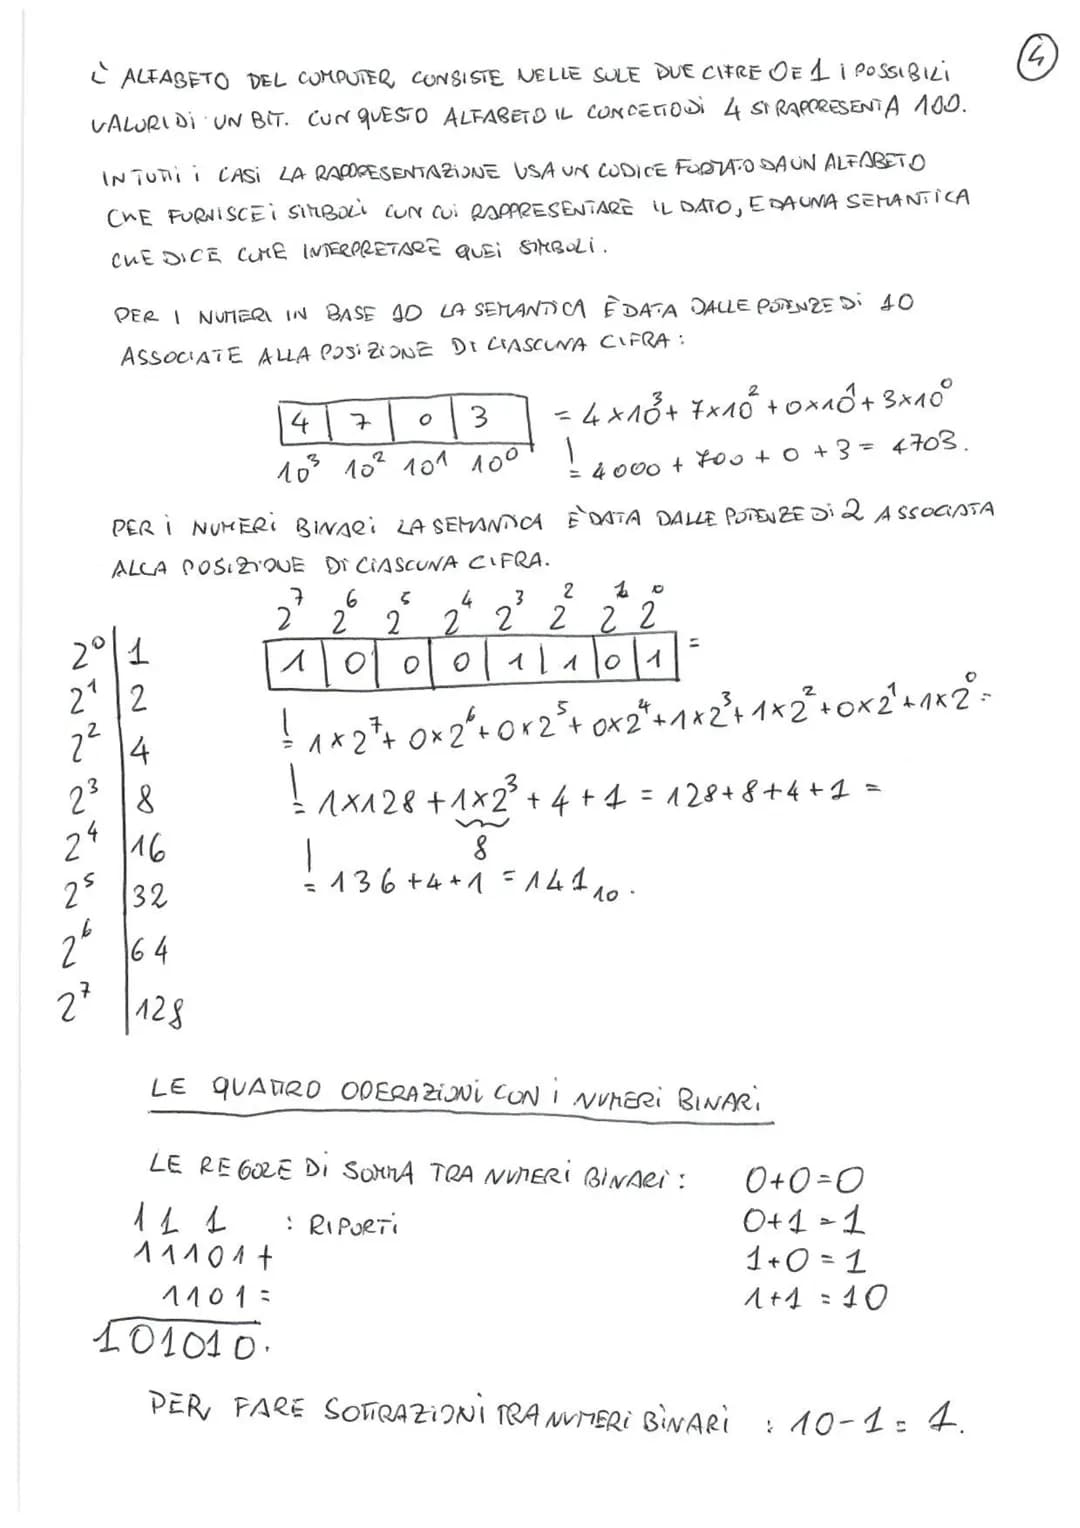 4
L' ALFABETO DEL COMPUTER CONSISTE NELLE SOLE DUE CIFRE 0 E 1 i POSSIBILI
VALORI Di UN BIT. CON QUESTO ALFABETO IL CONCETTO Di 4 SI RAPPRESENTA 100.
IN TUTTI i CASI LA RAPPRESENTAZIONE USA UN CODICE FORMATO DA UN ALFABETO
CHE FORNISCE i SIMBOLI CON CUI RAPPRESENTARE IL DATO, E DA UNA SEMANTICA
CHE DICE COME INTERPRETARE QUEI SIMBOLI.
PER I NUMERI IN BASE 10 LA SEMANTICA È DATA DALLE POTENZE Di 10
ASSOCIATE ALLA POSIZIONE DI CIASCUNA CIFRA :
4 | 7 | 0 | 3 = 4×10³ + 7×10² + 0×10¹ + 3×10⁰
10³ 10² 10¹ 10⁰ = 4000 + 700 + 0 + 3 = 4703.
PER I NUMERI BINARI LA SEMANTICA È DATA DALLE POTENZE Di 2 ASSOCIATA
ALLA POSIZIONE DI CIASCUNA CIFRA.
2⁷ 2⁶ 2⁵ 2⁴ 2³ 2² 2¹ 2⁰
1 | 0 | 0 | 0 | 1 | 1 | 0 | 1 =
= 1×2⁷ + 0×2⁶ + 0×2⁵ + 0×2⁴ + 1×2³ + 1×2² + 0×2¹ + 1×2⁰ =
= 1×128 + 1×2³ + 4 + 1 = 128+8+4+1 =
8
= 136+4+1 = 141₁₀.
2⁰ | 1
2¹ | 2
2² | 4
2³ | 8
2⁴ | 16
2⁵ | 32
2⁶ | 64
2⁷ | 128
LE QUATTRO OPERAZIONI CON i NUMERI BINARI
LE REGOLE DI SOMMA TRA NUMERI BINARI :
0+0=0
0+1=1
1+0=1
1+1=10
1 1 1 : RIPORTI
11101+
1101=
101010.
PER FARE SOTTRAZIONI TRA NUMERI BINARI : 10-1=1.